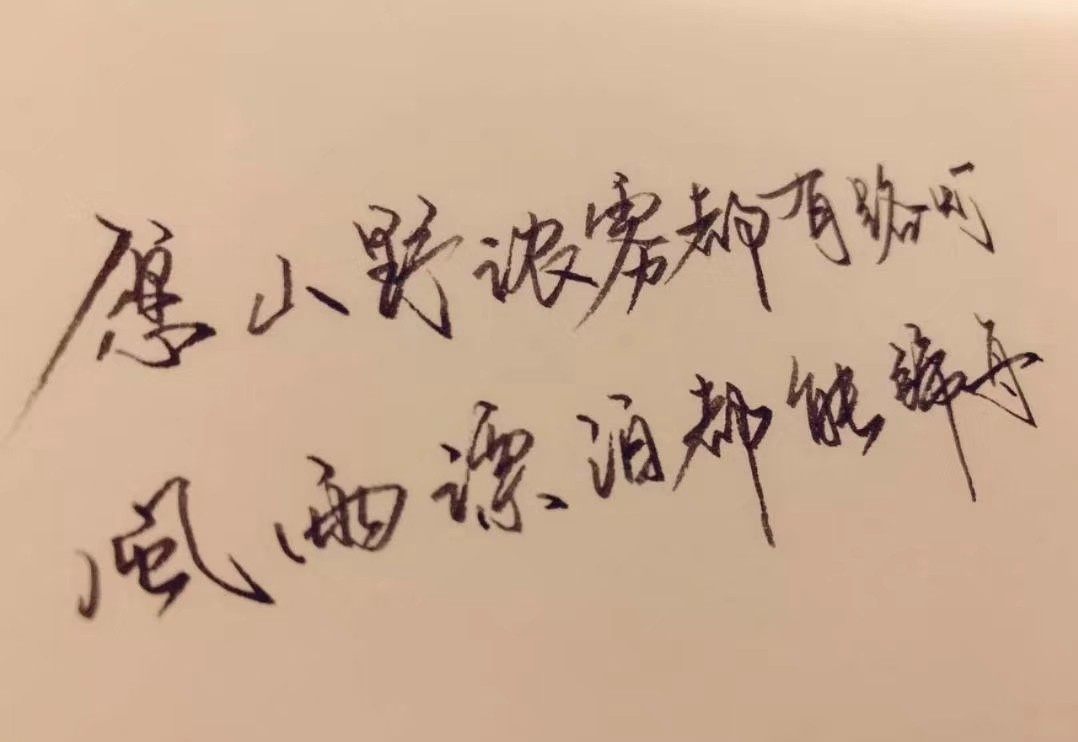 愿山野浓雾都有路可
風雨漂泊都能归舟